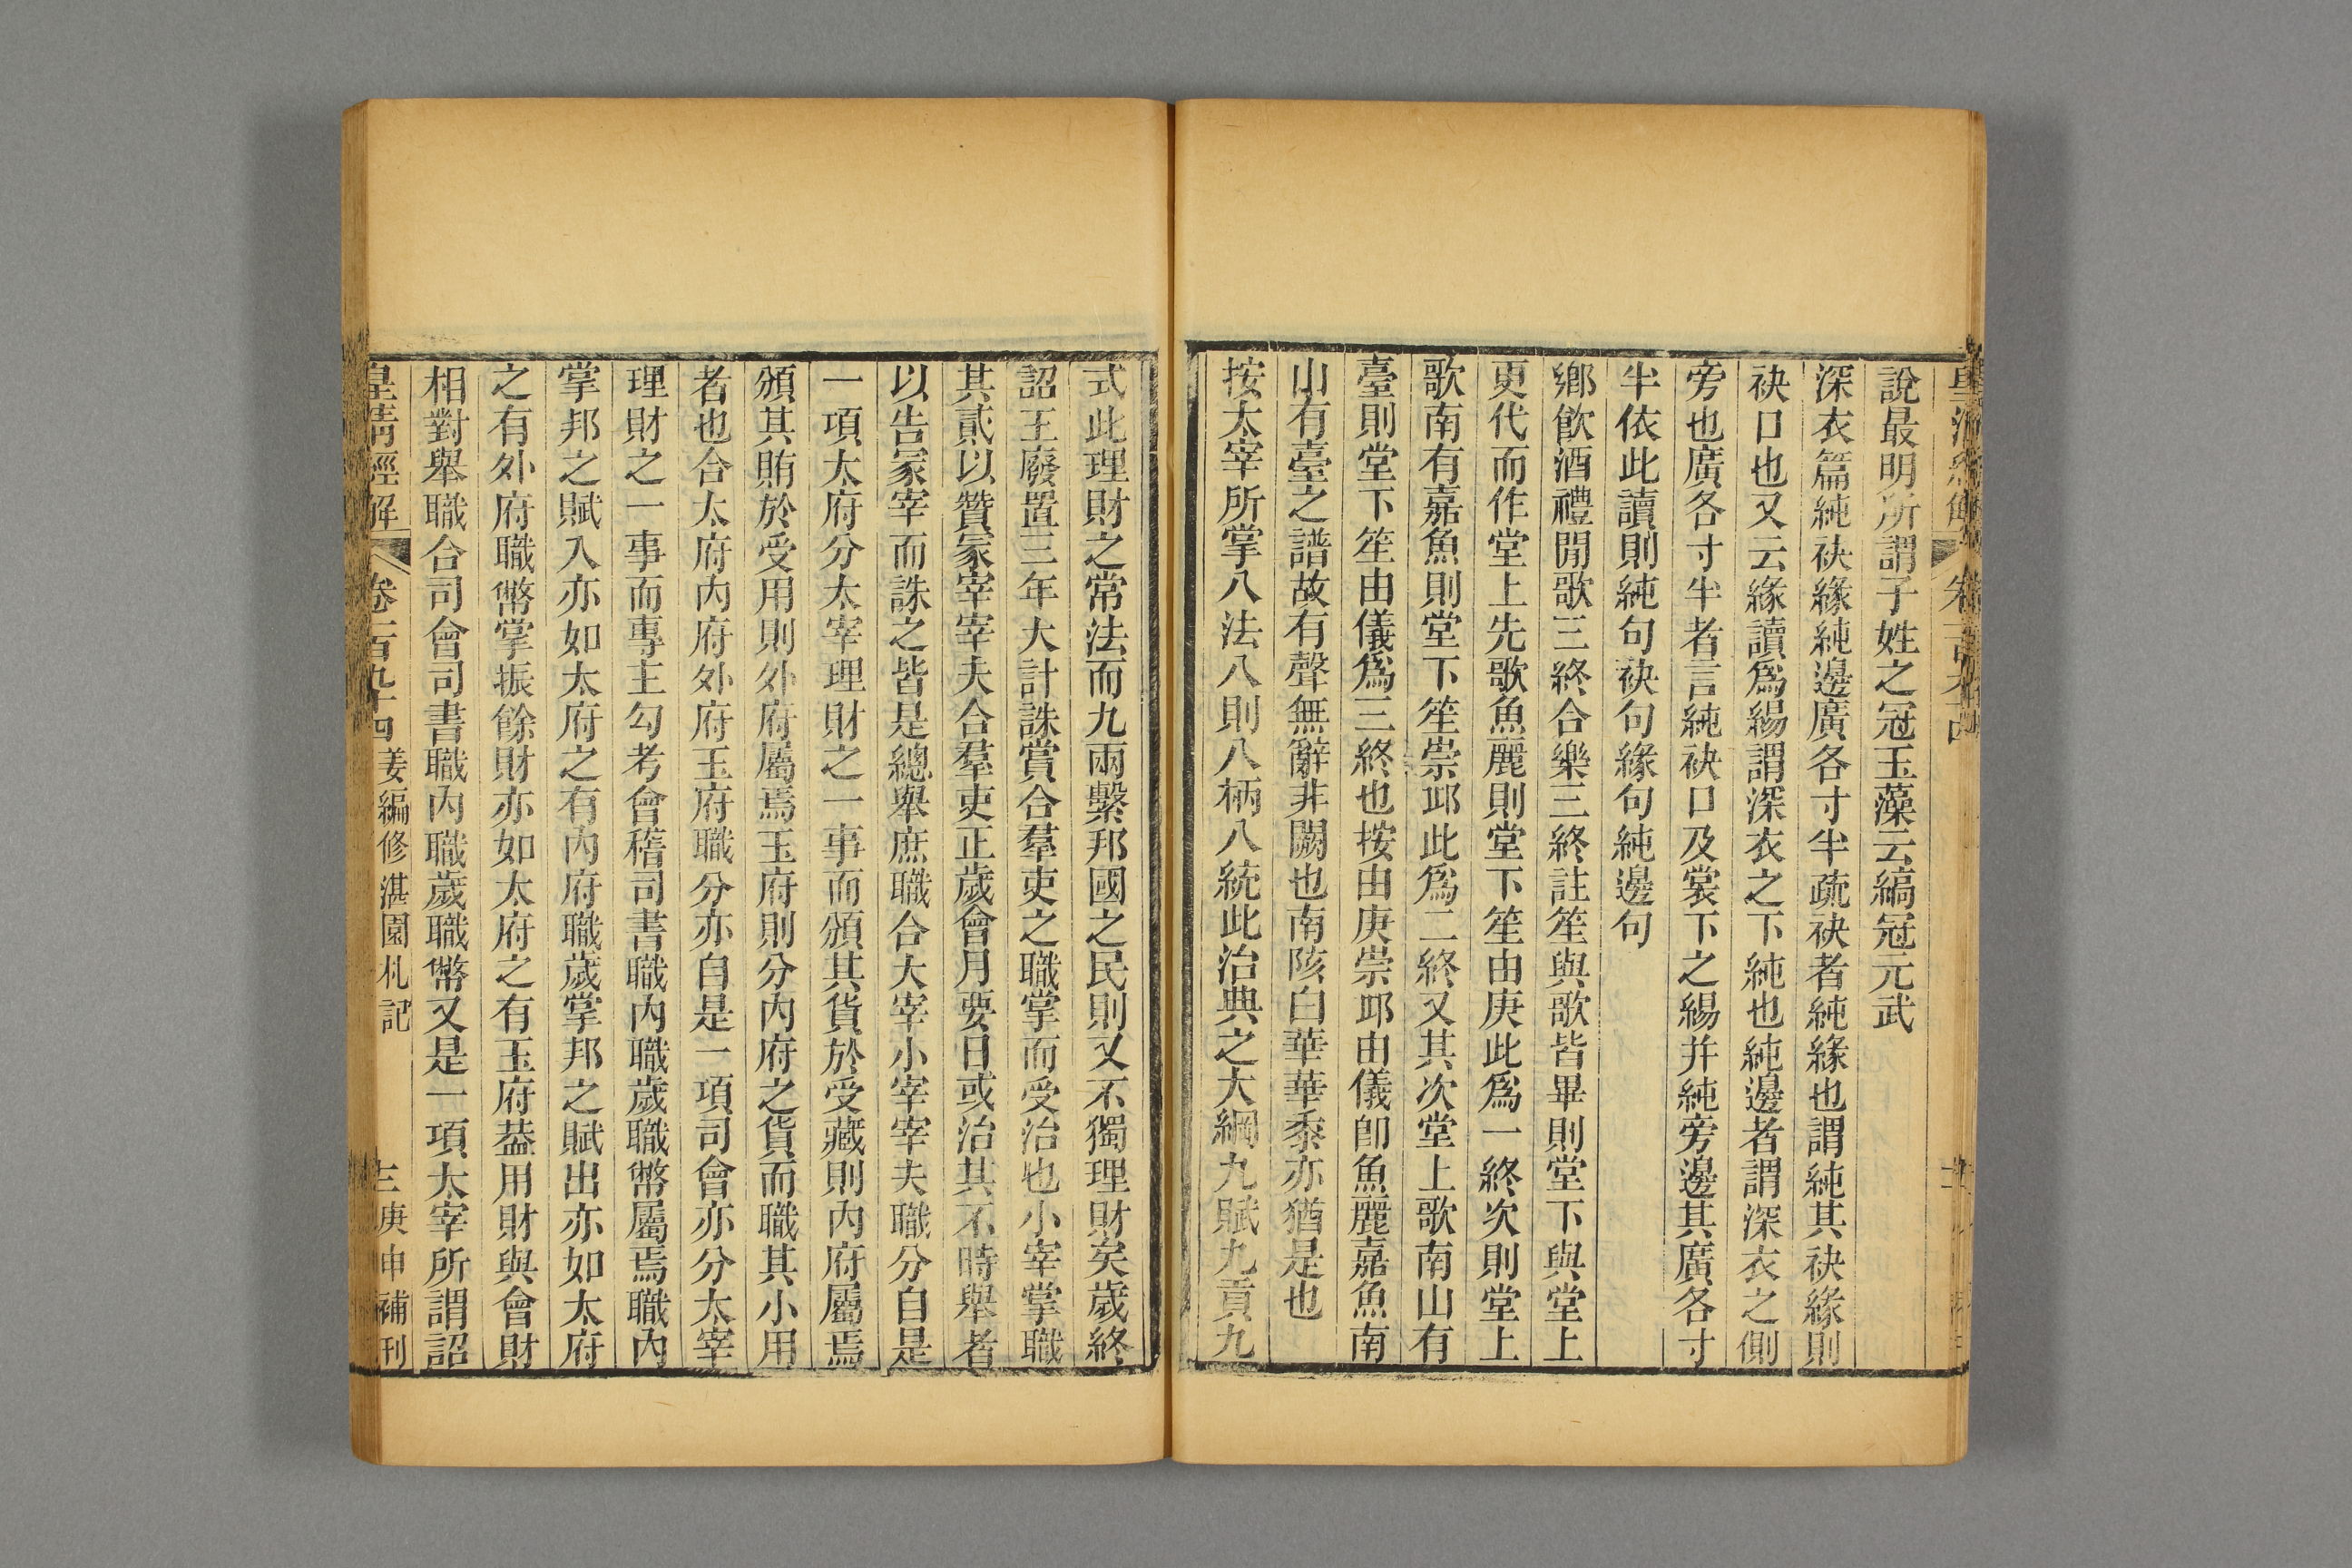 說最明所謂子姓之冠玉藻云縞冠元武
深衣篇純袂緣純邊廣各寸半疏袂者純緣也謂純其袂緣則
袂口也又云緣讀爲緆謂深衣之下純也純邊者謂深衣之側
旁也廣各寸半者言純袂口及裳下之緆并純旁邊其廣各寸
半依此讀則純句袂句緣句純邊句
鄉飮酒禮閒歌三終合樂三終註笙與歌皆畢則堂下與堂上
更代而作堂上先歌魚麗則堂下笙由庚此爲一終次則堂上
歌南有嘉魚則堂下笙崇邱此爲二終又其次堂上歌南山有
臺則堂下笙由儀爲三終也按由庚崇邱由儀卽魚麗嘉魚南
山有臺之譜故有聲無辭非闕也南陔白華華黍亦猶是也
按太宰所掌八法八則八柄八統此治典之大綱九賦九貢九
式此理財之常法而九兩繫邦國之民則又不獨理財矣歲終
詔王廢置三年大計誅賞合羣吏之職掌而受治也小宰掌職
其貳以贊冢宰宰夫合羣吏正歲會月要日或治其不時舉者
以告冢宰而誅之皆是總舉庶職合大宰小宰宰夫職分自是
一項太府分太宰理財之一事而頒其貨於受藏則內府屬焉
頒其賄於受用則外府屬焉玉府則分內府之貨而職其小用
者也合太府內府外府玉府職分亦自是一項司會亦分太宰
理財之一事而專主勾考會稽司書職內職歲職幣屬焉職內
掌邦之賦入亦如太府之有內府職歲掌邦之賦出亦如太府
之有外府職幣掌振餘財亦如太府之有玉府葢用財與會財
相對舉職合司會司書職內職歲職幣又是一項太宰所謂詔
皇清經解 卷二百九十四 姜編修湛園札記 三 庚申補刊